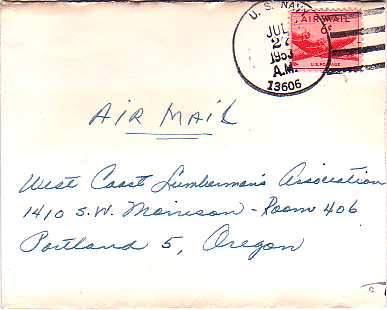 U. S. NAVY
JUL
27
1953
A.M.
13606
AIR MAIL
6¢
U.S. POSTAGE
AIR MAIL
West Coast Lumberman's Association
1410 S.W. Morrison - Room 406
Portland 5, Oregon